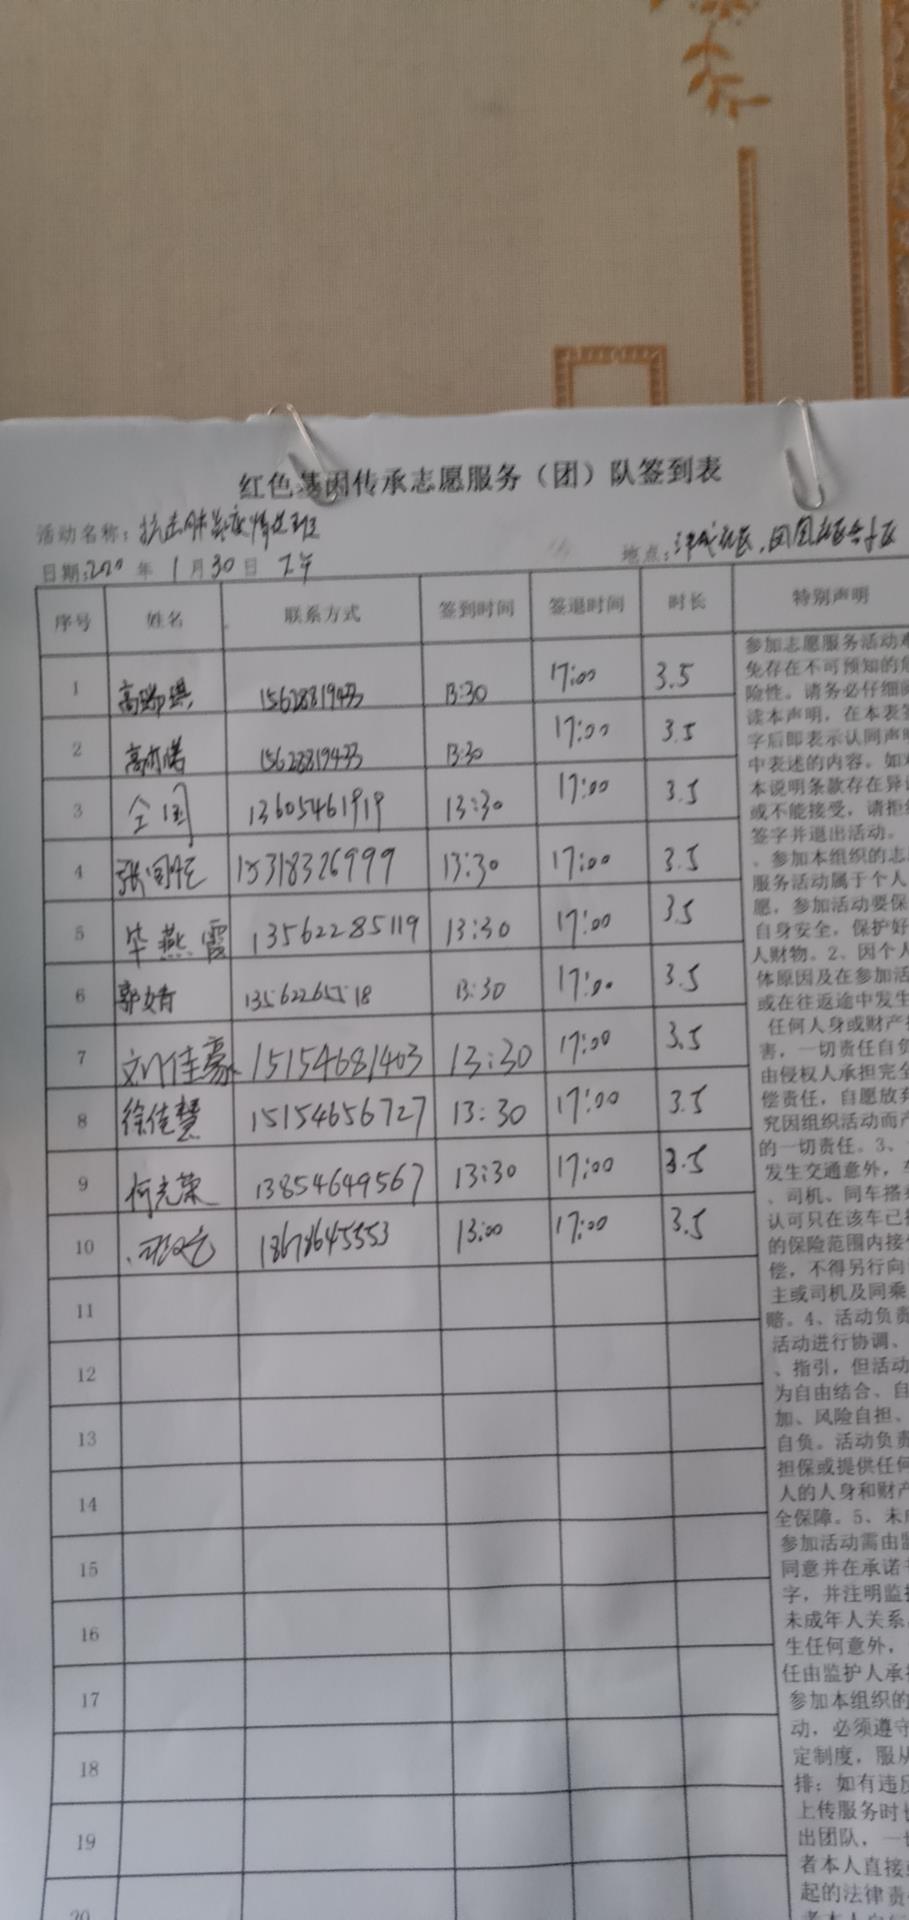 红色基因传承志愿服务（团）队签到表
活动名称：抗击肺炎疫情值班
日期：2020 年 1 月 30 日 下午 地点：
序号 姓名 联系方式 签到时间 签退时间 时长 特别声明
1 15628819433 13:30 17:00 3.5
2 15628819433 13:30 17:00 3.5
3 全国 13605461919 13:30 17:00 3.5
4 15318326999 13:30 17:00 3.5
5 毕燕霞 13562285119 13:30 17:00 3.5
6 郭婧 13562265518 13:30 17:00 3.5
7 刘佳豪 15154681403 13:30 17:00 3.5
8 徐佳慧 15154656727 13:30 17:00 3.5
9 何光荣 13854649567 13:30 17:00 3.5
10 18678645553 13:00 17:00 3.5
11
12
13
14
15
16
17
18
19
20
参加志愿服务活动难
免存在不可预知的危
险性。请务必仔细阅
读本声明，在本表签
字后即表示认同声明
中表述的内容。如对
本说明条款存在异议
或不能接受，请拒绝
签字并退出活动。
、参加本组织的志愿
服务活动属于个人自
愿，参加活动要保
自身安全，保护好
人财物。2、因个人
体原因及在参加活
或在往返途中发生
任何人身或财产损
害，一切责任自负
由侵权人承担完全
偿责任，自愿放弃
究因组织活动而产
的一切责任。3、
发生交通意外，车
、司机、同车搭乘
认可只在该车已投
的保险范围内接受
偿，不得另行向
主或司机及同乘
赔。4、活动负责
活动进行协调、
、指引，但活动
为自由结合、自
加、风险自担、
自负。活动负责
担保或提供任何
人的人身和财产
全保障。5、未成
参加活动需由监
同意并在承诺书
字，并注明监护
未成年人关系
生任何意外，
任由监护人承担
参加本组织的
动，必须遵守
定制度，服从
排；如有违反
上传服务时长
出团队，一切
者本人直接或
起的法律责任